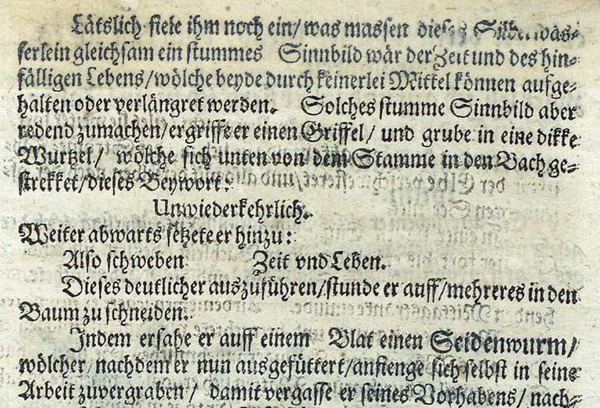 Lätslich fiele ihm noch ein/ was massen dieses Silberwäs-
serlein gleichsam ein stummes Sinnbild wär der Zeit und des hin-
fälligen Lebens/ wölche beyde durch keinerlei Mittel können aufge-
halten oder verlängret werden. Solches stumme Sinnbild aber
redend zumachen/ ergriffe er einen Griffel/ und grube in eine dikke
Wurtzel/ wölche sich unten von dem Stamme in den Bach ge-
strekket/ dieses Beywort:
Unwiederkehrlich.
Weiter abwarts setzete er hinzu:
Also schweben Zeit vnd Leben.
Dieses deutlicher auszuführen/ stunde er auff/ mehreres in den
Baum zu schneiden.
Indem ersahe er auff einem Blat einen Seidenwurm/
wölcher/ nachdem er nun ausgefüttert/ anfienge sich selbst in seine
Arbeit zuvergraben/ damit vergasse er seines Vorhabens/ nach-